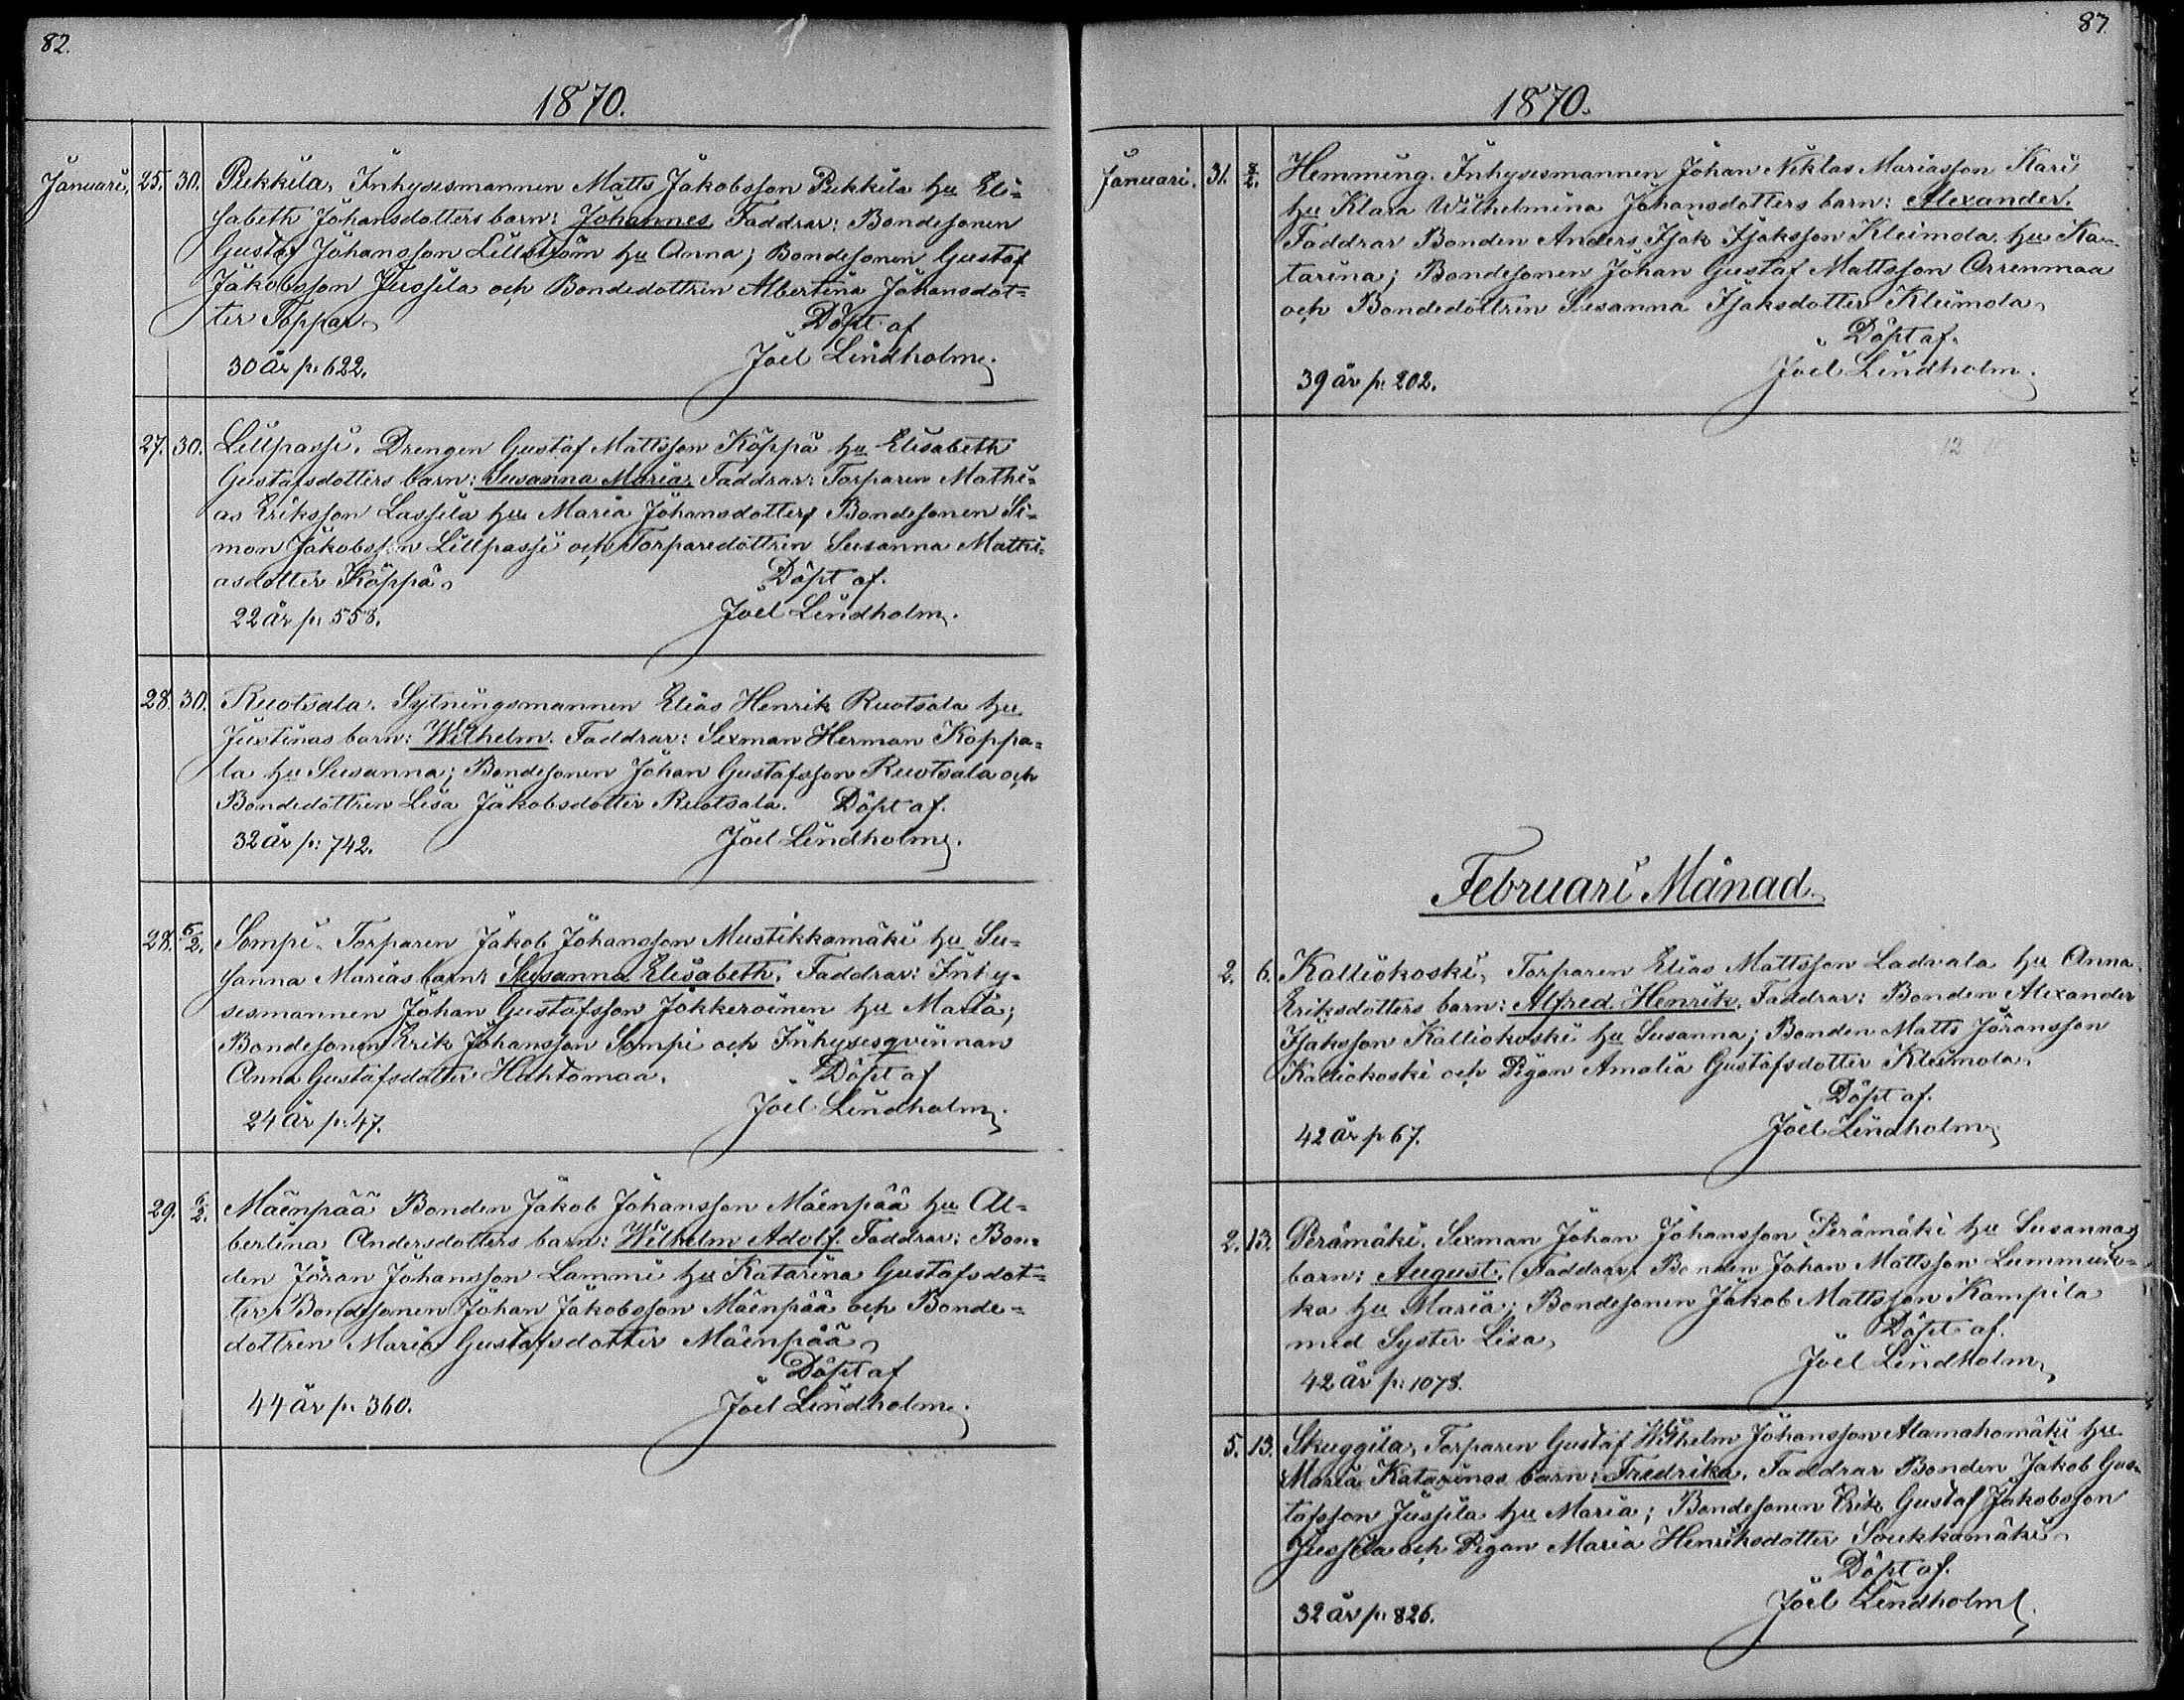 82.
1870.
Januari. 25. 30. Pukkila. Inhysesmannen Matts Jakobsson Pukkila hu Eli=
sabeth Johansdotters barn: Johannes. Faddrar: Bondesonen
Gustaf Johansson Lillström hu Anna; Bondesonen Gustaf
Jakobsson Jussila och Bondedottren Albertina Johansdot=
ter Toppar.
Döpt af
30 år p. 622. Joel Lindholm.
27. 30. Lillpassi. Drengen Gustaf Mattsson Köppä hu Elisabeth
Gustafsdotters barn: Susanna Maria. Faddrar: Torparen Mathi=
as Eriksson Lassila hu Maria Johansdotter; Bondesonen Si=
mon Jakobsson Lillpassi och Torparedottren Susanna Mathi=
asdotter Köppä.
Döpt af.
22 år p. 558. Joel Lindholm.
28. 30. Ruotsala. Sytningsmannen Elias Henrik Ruotsala hu
Justinas barn: Wilhelm. Faddrar: Sexman Herman Koppa=
la hu Susanna; Bondesonen Johan Gustafsson Ruotsala och
Bondedottren Lisa Jakobsdotter Ruotsala. Döpt af.
32 år p: 742. Joel Lindholm.
28. 6/2. Sompi. Torparen Jakob Johansson Mustikkamäki hu Su=
sanna Marias barn: Susanna Elisabeth. Faddrar: Inhy=
sesmannen Johan Gustafsson Jokkeroinen hu Maria;
Bondesonen Erik Johansson Sompi och Inhysesqvinnan
Anna Gustafsdotter Hahtomaa. Döpt af
24 år p. 47. Joel Lindholm.
29. 6/2. Mäenpää Bonden Jakob Johansson Mäenpää hu Al=
bertina Andersdotters barn: Wilhelm Adolf. Faddrar: Bon=
den Jöran Johansson Lammi hu Katarina Gustafsdot=
ter; Bondesonen Johan Jakobsson Mäenpää och Bonde=
dottren Maria Gustafsdotter Mäenpää.
Döpt af
44 år p. 360. Joel Lindholm.
87.
1870.
Januari. 31. 8/2. Hemming. Inhysesmannen Johan Niklas Mariasson Kari
hu Klara Wilhelmina Johansdotters barn: Alexander.
Faddrar Bonden Anders Isak Isaksson Kleimola hu Ka=
tarina; Bondesonen Johan Gustaf Mattsson Orrenmaa
och Bondedottren Susanna Isaksdotter Kleimola.
Döpt af.
39 år p: 202. Joel Lindholm.
Februari Månad.
2. 6. Kalliokoski. Torparen Elias Mattsson Ladvala hu Anna
Eriksdotters barn: Alfred Henrik. Faddrar: Bonden Alexander
Isaksson Kalliokoski hu Susanna; Bonden Matts Jöransson
Kalliokoski och Pigan Amalia Gustafsdotter Kleimola.
Döpt af.
42 år p 67. Joel Lindholm.
2. 13. Perämäki. Sexman Johan Johansson Perämäki hu Susannas
barn: August. Faddrar: Bonden Johan Mattsson Lummuk=
ka hu Maria; Bondesonen Jakob Mattsson Kampila
med Syster Lisa.
Döpt af.
42 år p: 1078. Joel Lindholm.
5. 13. Skuggila. Torparen Gustaf Wilhelm Johansson Alamahomäki hu
Maria Katarinas barn: Fredrika. Faddrar Bonden Jakob Gus=
tafsson Jussila hu Maria; Bondesonen Erik Gustaf Jakobsson
Jussila och Pigan Maria Henriksdotter Soukkamäki.
Döpt af.
32 år p. 826. Joel Lindholm.